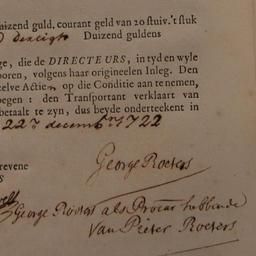 uizend guld. courant geld van 20 stuiv. 't stuk
Duizend guldens
ge, die de DIRECTEURS, in tyd en wyle
oren, volgens haar origineelen Inleg. Den
zelve Actien op die Conditie aan te nemen,
oegen: den Transportant verklaart van
betaalt te zyn, dus beyde onderteekent in
22ten decemb: 1722
George Roeters
revene
s
George Roeters als Procur: hebbende
van Pieter Roeters